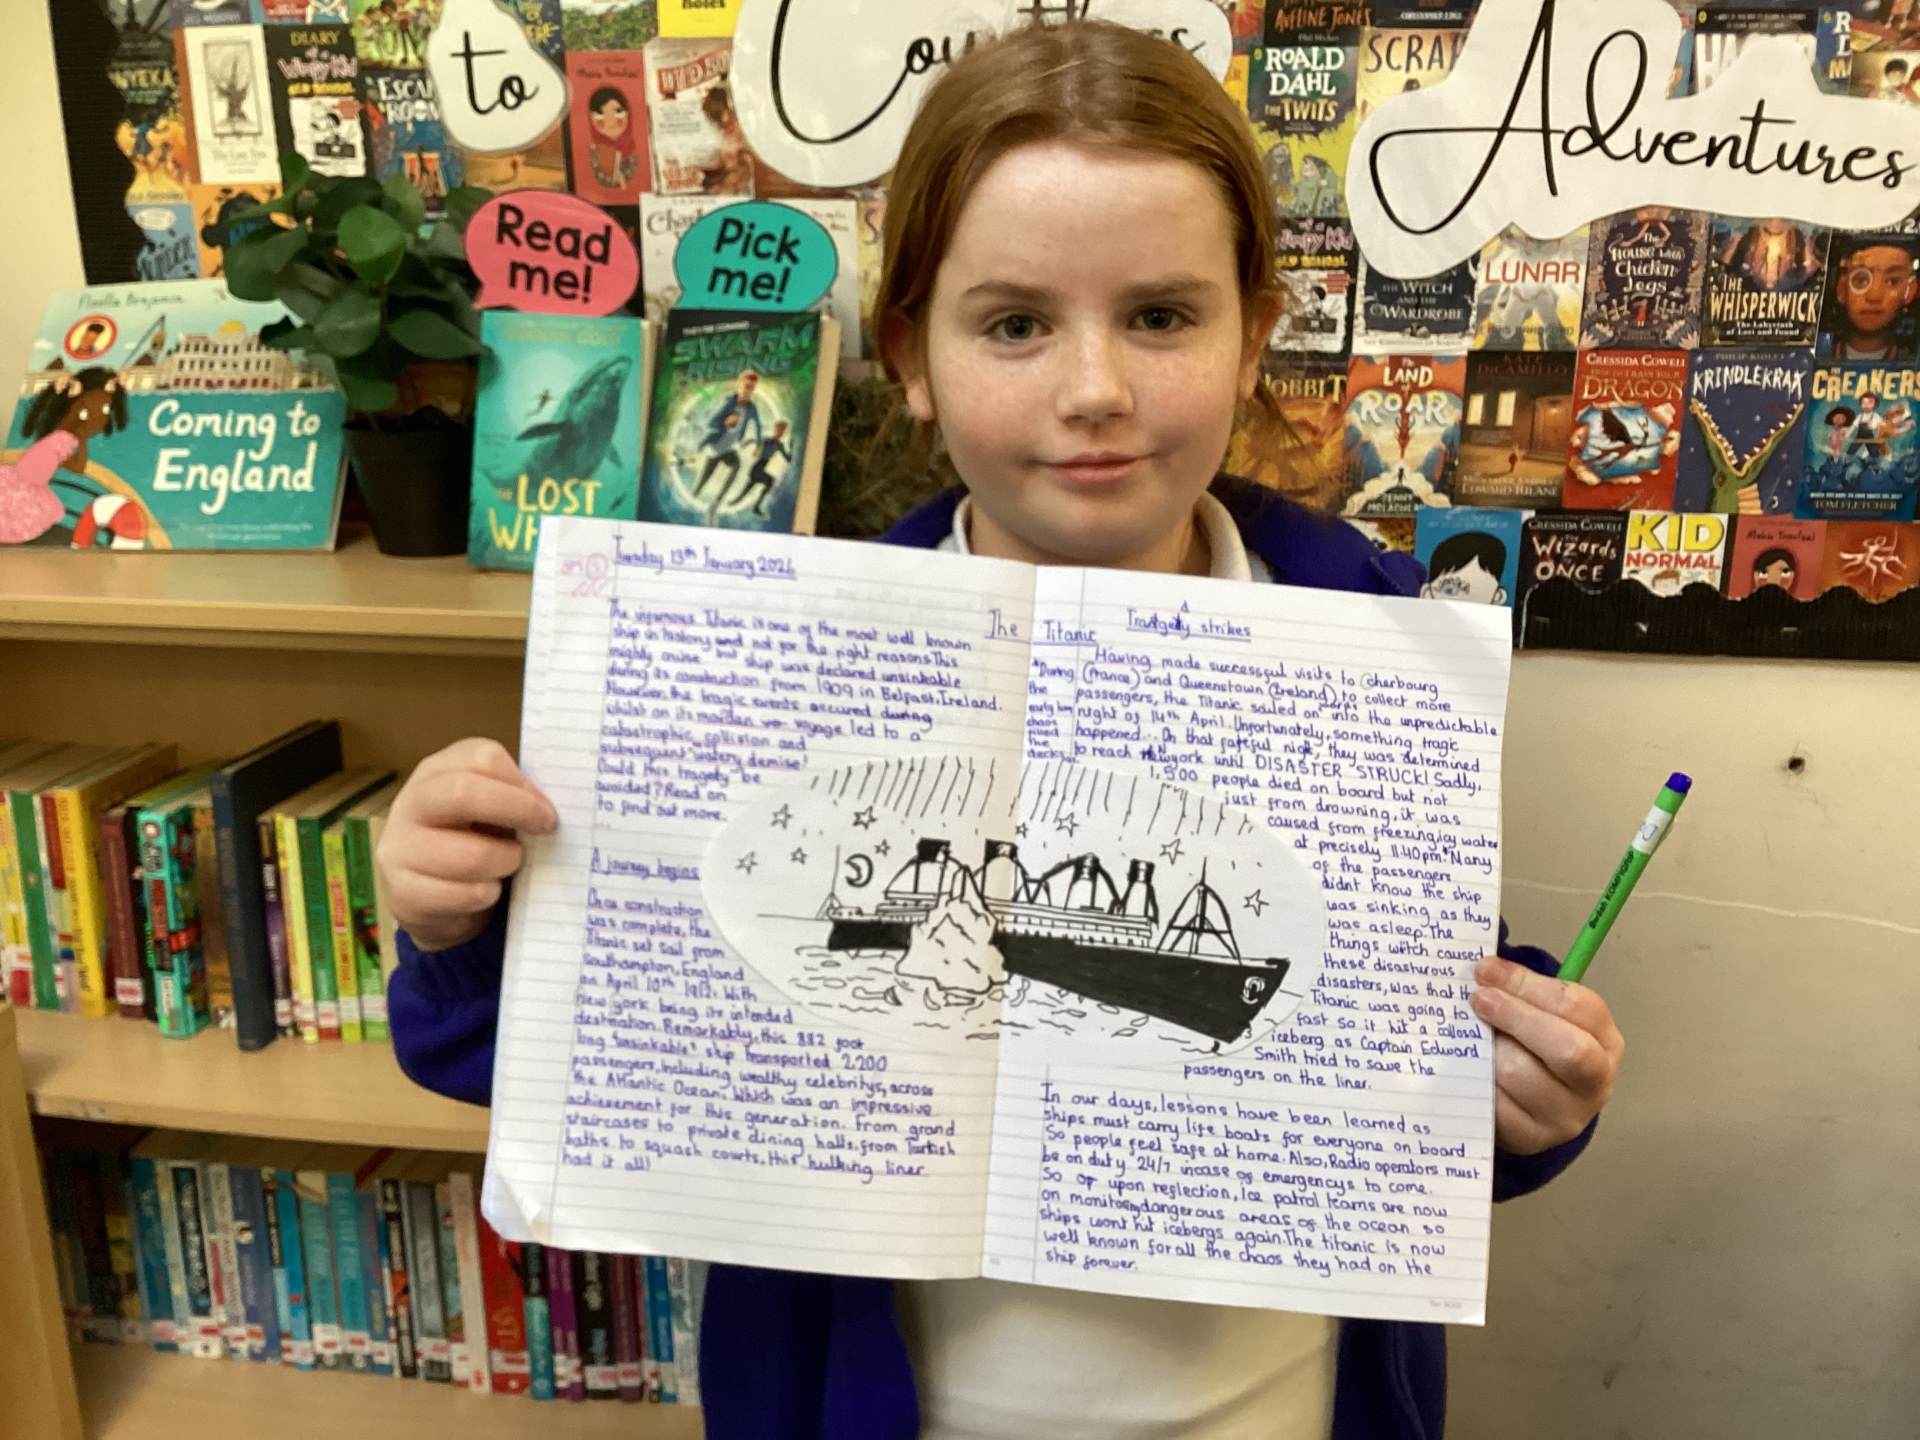 to
Adventures
DIARY
Wimpy Kid
ESCAPE
ROOM
NYEKA
Read
me!
Pick
me!
Floella Benjamin
Coming to
England
THE LOST
SWARM
RISING
AVELINE JONES
ROALD
DAHL
THE TWITS
SCRAP
THE WITCH
AND THE
WARDROBE
LUNAR
The
HOUSE with
Chicken
Legs
THE
WHISPERWICK
The Labyrinth
of Lost and Found
HOBBIT
The
LAND
of
ROAR
KATE
DiCAMILLO
EDWARD TULANE
CRESSIDA COWELL
DRAGON
PHILIP RIDLEY
KRINDLEKRAX
THE
CREAKERS
TOM FLETCHER
CRESSIDA COWELL
THE
Wizards
of
ONCE
KID
NORMAL
Tuesday 13th January 2026
The Titanic
The infamous Titanic is one of the most well known
ship in history and not for the right reasons. This
mighty cruise ship was declared unsinkable
during its construction from 1909 in Belfast, Ireland.
However, the tragic events occured during
whilst on its maiden voyage led to a
catastrophic collision and
subsequent watery demise!
Could this tragety be
avoided? Read on
to find out more.
...
A journey begins
Once construction
was complete, the
Titanic set sail from
Southampton, England
on April 10th 1912. With
New york being its intended
destination. Remarkably, this 882 foot
long 'unsinkable' ship transported 2200
passengers, including wealthy celebritys, across
the Atlantic Ocean. Which was an impressive
achievement for this generation. From grand
staircases to private dining halls, from Turkish
baths to squash courts, this hulking liner
had it all!
Tradgedy strikes
Having made successful visits to Cherbourg
(France) and Queenstown (Ireland) to collect more
passengers, the Titanic sailed on into the unpredictable
night of 14th April. Unfortunately, something tragic
happened... On that fateful night, they was determined
to reach Newyork until DISASTER STRUCK! Sadly,
1,500 people died on board but not
just from drowning, it was
caused from freezing, icy water
at precisely 11.40pm.* Many
of the passengers
didnt know the ship
was sinking as they
was asleep. The
things witch caused
these disasturous
disasters, was that the
Titanic was going to
fast so it hit a collosal
iceberg as Captain Edward
Smith tried to save the
passengers on the liner.
*During
the
early hrs
chaos
filled
the
decks.
In our days, lessons have been learned as
ships must carry life boats for everyone on board
So people feel safe at home. Also, Radio operators must
be on duty 24/7 incase of emergencys to come.
So of upon reflection, Ice patrol teams are now
on monitoring dangerous areas of the ocean so
ships wont hit icebergs again. The titanic is now
well known for all the chaos they had on the
ship forever.